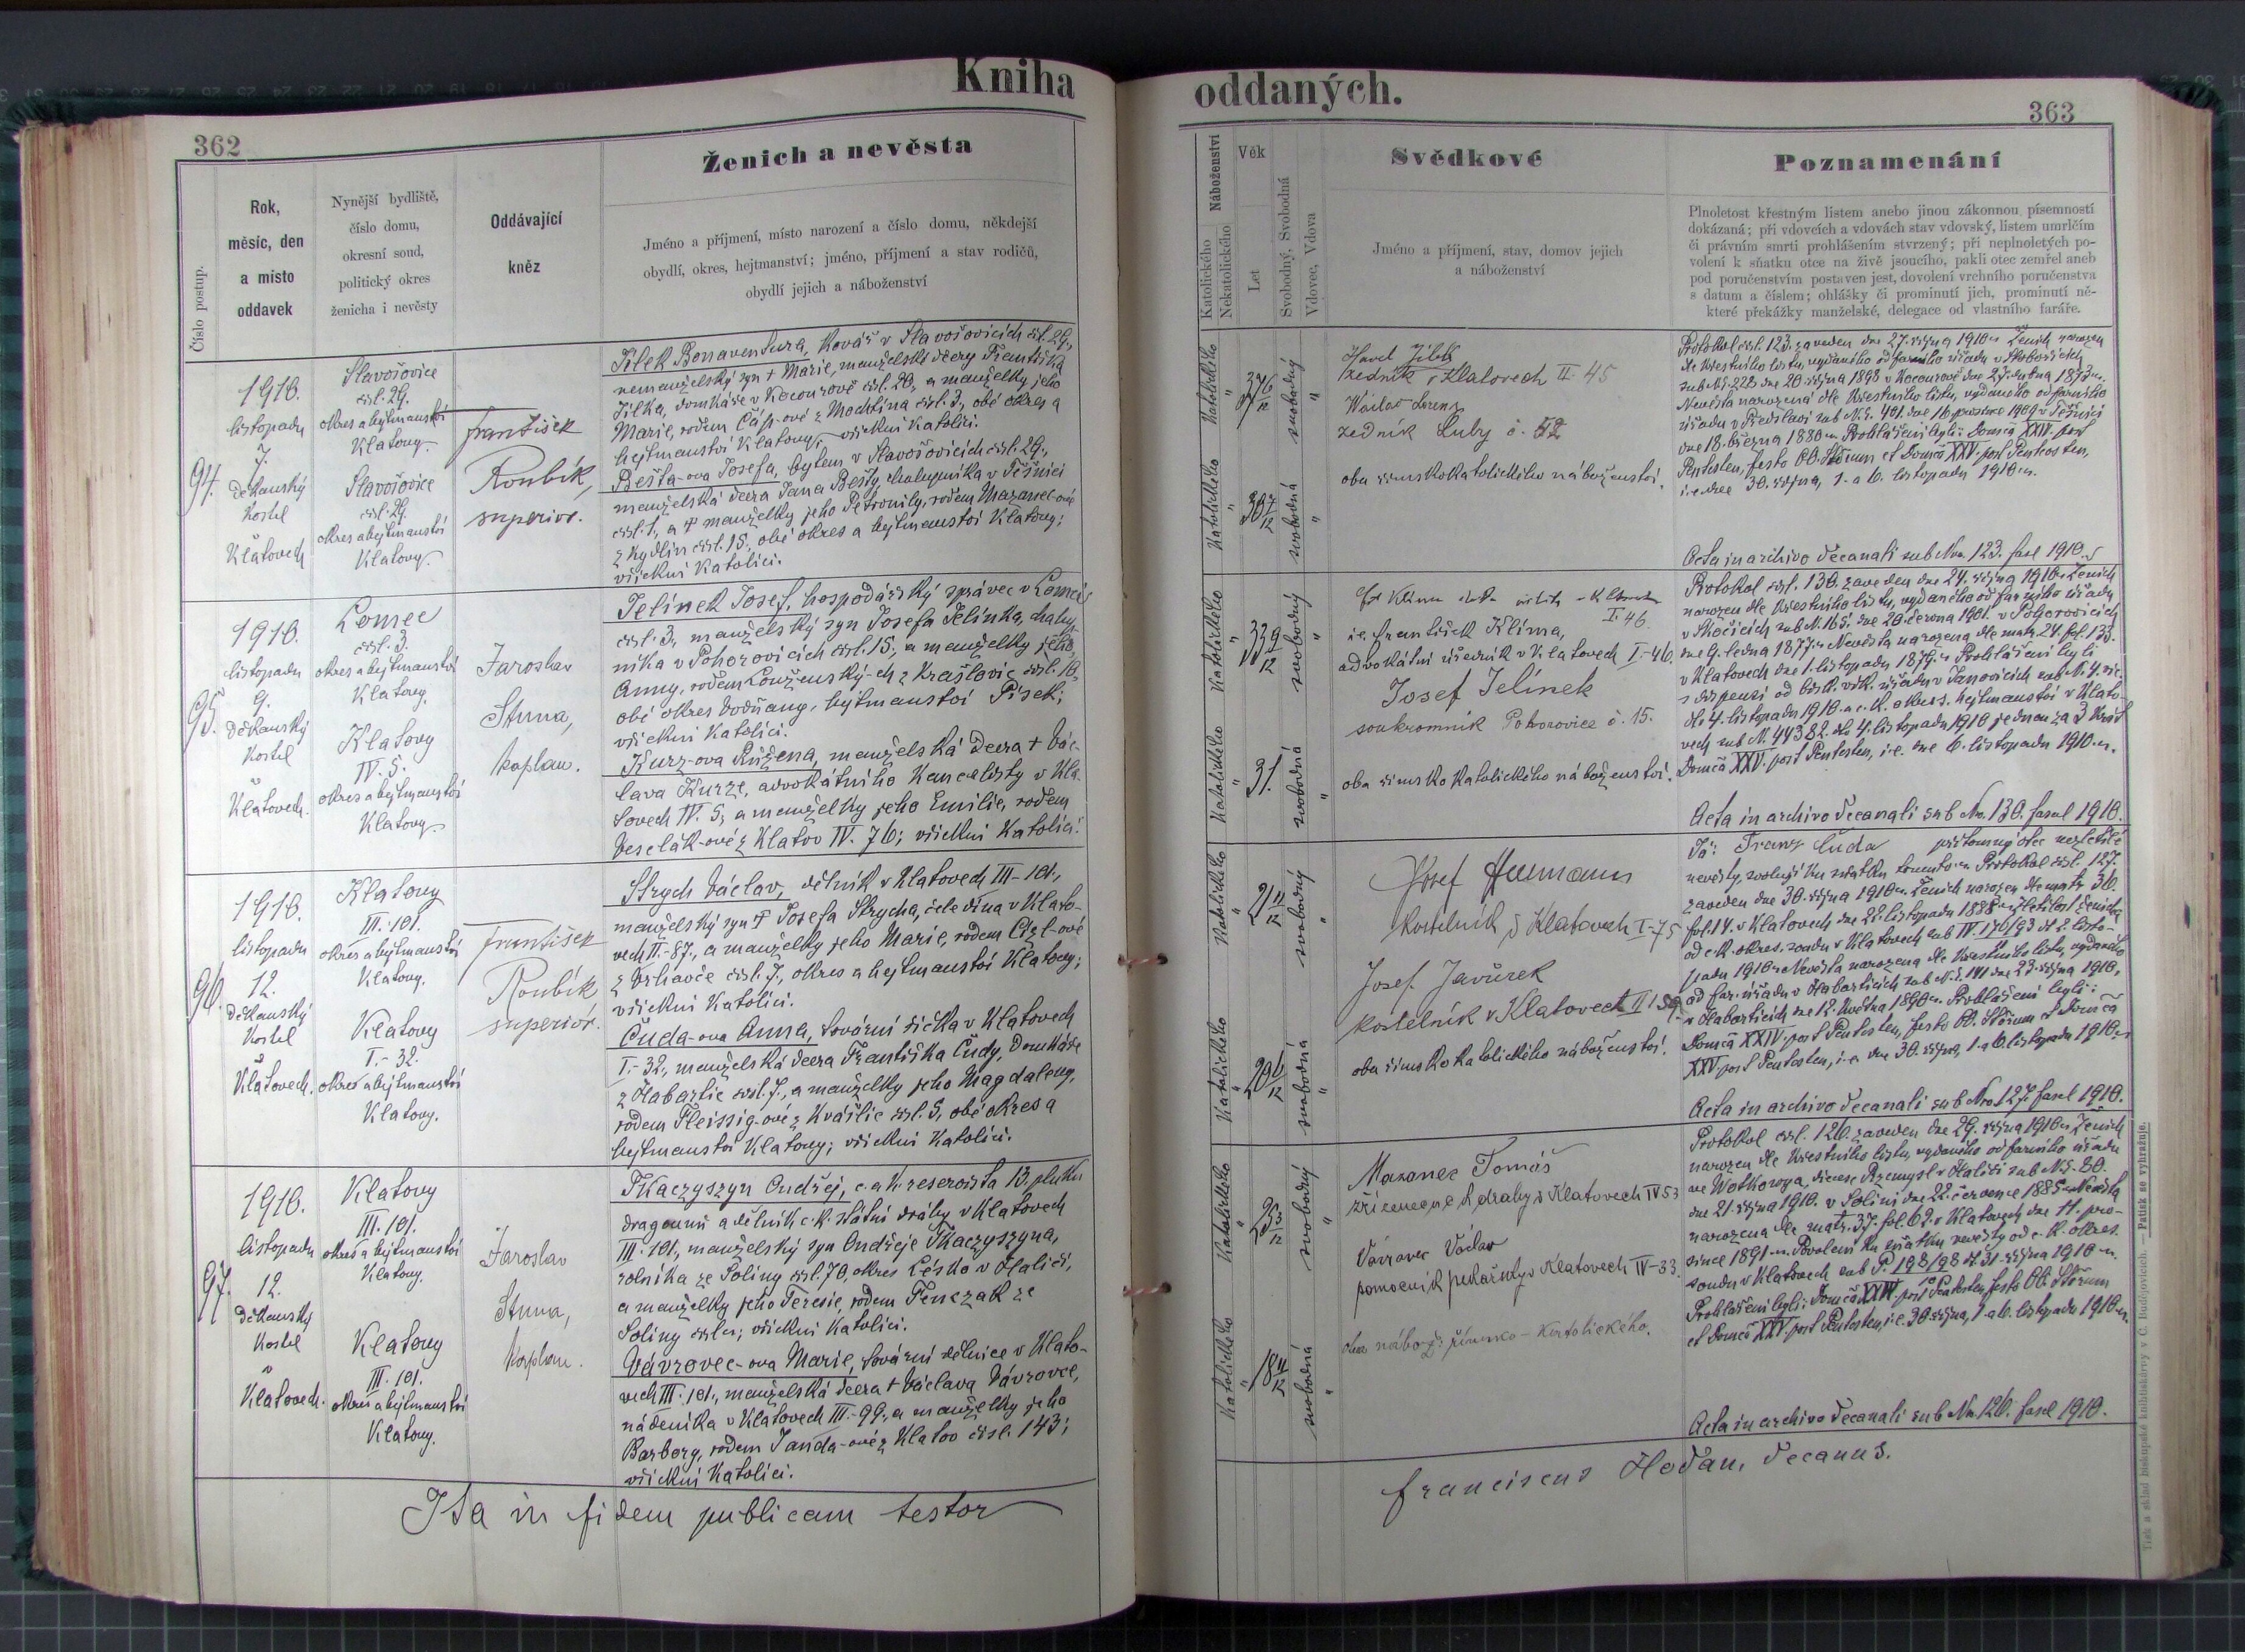 Kniha
oddaných.
362
363
Číslo postup.
Rok,
měsíc, den
a místo
oddavek
Nynější bydliště,
číslo domu,
okresní soud,
politický okres
ženicha i nevěsty
Oddávající
kněz
Ženich a nevěsta
Jméno a příjmení, místo narození a číslo domu, někdejší
obydlí, okres, hejtmanství; jméno, příjmení a stav rodičů,
obydlí jejich a náboženství
Náboženství
Katolického
Nekatolického
Věk
Let
Svobodný, Svobodná
Vdovec, Vdova
Svědkové
Jméno a příjmení, stav, domov jejich
a náboženství
Poznamenání
Plnoletost křestným listem anebo jinou zákonnou písemností
dokázaná; při vdovcích a vdovách stav vdovský, listem umrlčím
či právním smrti prohlášením stvrzený; při neplnoletých po-
volení k sňatku otce na živě jsoucího, pakli otec zemřel aneb
pod poručenstvím postaven jest, dovolení vrchního poručenstva
s datum a číslem; ohlášky či prominutí jich, prominutí ně-
které překážky manželské, delegace od vlastního faráře.
94.
1910.
listopadu
7.
děkanský
kostel
v
Klatovech
Slavošovice
čísl. 29.
okres a hejtmanství
Klatovy.
Slavošovice
čísl. 29.
okres a hejtmanství
Klatovy.
František
Roubík,
superior.
Jílek Bonaventura, kovář v Slavošovicích čísl. 29.,
nemanželský syn † Marie, manželské dcery Františka
Jílka, domkáře v Kocourově čísl. 20., a manželky jeho
Marie, rodem Čáp-ové z Mochtína čísl. 3., obé okres a
hejtmanství Klatovy; všickni katolíci.
Bešta-ova Josefa, bytem v Slavošovicích čísl. 29.,
manželská dcera Jana Bešty, chalupníka v Těšnici
čísl. 1., a † manželky jeho Petronily, rodem Mazanec-ové
z Kydlin čísl. 15., obé okres a hejtmanství Klatovy;
všickni katolíci.
Katolického
"
37 6/12
svobodný
"
Katolického
"
30 7/12
svobodná
"
Havel Jílek
zedník v Klatovech II 45
Václav Lorenz
zedník Luby č. 52
oba římskokatolického náboženství.
Protokol čísl. 123. zaveden dne 27. října 1910. Ženich narozen
dle křestního listu, vydaného od farního úřadu v
sub N. 222 dne 20 října 1898 v Kocourově dne 27. dubna 1873.
Nevěsta narozená dle křestního listu, vydaného od farního
úřadu v Předslavi sub N.E. 401. dne 16. prosince 1909 v Těšnici
dne 18. března 1880. Prohlášení byli: Domca XXIV. post
Pentecosten, festo OO. Stórum et Domca XXV. post Pentecosten,
i. e. dne 30. října, 1. a 6. listopadu 1910.
Acta in archivo decanali sub Nro. 123. fasc 1910.
95.
1910.
listopadu
9.
děkanský
kostel
v
Klatovech.
Lomec
čísl. 3.
okres a hejtmanství
Klatovy.
Klatovy
IV. 5.
okres a hejtmanství
Klatovy.
Jaroslav
Stuna,
kaplan.
Jelínek Josef, hospodářský správce v Lomci
čísl. 3., manželský syn Josefa Jelínka, chalup-
níka v Pohorovicích čísl. 15., a manželky jeho
Anny, rodem Louženský-ch z Krašlovic čísl. 10.,
obé okres Vodňany, hejtmanství Písek;
všickni katolíci.
Kurz-ova Růžena, manželská dcera † Vác-
lava Kurze, advokátního kancelisty v Kla-
tovech IV. 5., a manželky jeho Emilie, rodem
Veselák-ové z Klatov IV. 76; všickni katolíci.
Katolického
"
33 9/12
svobodný
"
Katolického
"
31.
svobodná
"
I-46.
i.e. František Klíma,
advokátní úředník v Klatovech I-46.
Josef Jelínek
soukromník Pohorovice č. 15.
oba římsko katolického náboženství.
Protokol čísl. 130. zaveden dne 24. října 1910. Ženich
narozen dle křestního listu, vydaného od farního úřadu
v Skočicích sub N. 165. dne 20. června 1901. v Pohorovicích
dne 9. ledna 1877. Nevěsta narozena dle matr. 24. fol. 133.
v Klatovech dne 1. listopadu 1879. Prohlášeni byli
s dispensí od bisk. vik. úřadu v Janovicích sub N. 4. dis.
dto 4. listopadu 1910. a c. k. okres. hejtmanství v Klato-
vech sub N. 44382. dto 4. listopadu 1910 jednou za 3 krát
Domca XXV. post Pentecosten, i. e. dne 6. listopadu 1910.
Acta in archivo decanali sub Nro. 130. fascl 1910.
96.
1910.
listopadu
12.
děkanský
kostel
v
Klatovech.
Klatovy
III. 101.
okres a hejtmanství
Klatovy.
Klatovy
I.- 32.
okres a hejtmanství
Klatovy.
František
Roubík,
superior.
Strych Václav, dělník v Klatovech III-101.,
manželský syn † Josefa Strycha, čeledína v Klato-
vech II.-87., a manželky jeho Marie, rodem Cízl-ové
z Vrhavče čísl. 7., okres a hejtmanství Klatovy;
všickni katolíci.
Čuda-ova Anna, tovární šička v Klatovech
I.-32., manželská dcera Františka Čudy, domkáře
z Habartic čísl. 7., a manželky jeho Magdaleny,
rodem Fleissig-ové z Kvášlic čísl. 5, obé okres a
hejtmanství Klatovy; všickni katolíci.
Katolického
"
21 11/12
svobodný
"
Katolického
"
20 6/12
svobodná
"
Josef Heumann
kostelník v Klatovech I-75
Josef Javůrek
kostelník v Klatovech III 59
oba římskokatolického náboženství.
Já: Franz Čuda přítomný otec nezletilé
nevěsty, svoluji ku sňatku tomuto. Protokol čísl. 127.
zaveden dne 30. října 1910. Ženich narozen dle matr. 36.
fol. 14. v Klatovech dne 22. listopadu 1888.
od c.k. okres. soudu v Klatovech sub IV 176/93 dt 2. listo-
padu 1910. Nevěsta narozena dle křestního listu, vydaného
od far. úřadu v Habarticích sub N.E. 141 dne 23. října 1910,
v Habarticích dne 12. května 1890. Prohlášeni byli:
Domca XXIV. post Pentecosten, festo OO. Stórum et Domca
XXV. post Pentecosten, i. e. dne 30. října, 1. a 6. listopadu 1910.
Acta in archivo decanali sub Nro. 127. fascl 1910.
97.
1910.
listopadu
12.
děkanský
kostel
v
Klatovech.
Klatovy
III. 101.
okres a hejtmanství
Klatovy.
Klatovy
III. 101.
okres a hejtmanství
Klatovy.
Jaroslav
Stuna,
kaplan.
Tkaczyszyn Ondřej, c. a k. reservista 13. pluku
dragounů a dělník c. k. státní dráhy v Klatovech
III. 101., manželský syn Ondřeje Tkaczyszyna,
rolníka ze Soliny čísl. 70., okres Lésko v Haliči,
a manželky jeho Teresie, rodem Tenczak ze
Soliny čísl ; všickni katolíci.
Vávrovec-ova Marie, tovární dělnice v Klato-
vech III. 101., manželská dcera † Václava Vávrovce,
nádeníka v Klatovech III.-99., a manželky jeho
Barbory, rodem Janda-ové z Klatov čísl. 143;
všickni katolíci.
Katolického
"
25 3/12
svobodný
"
Katolického
"
18 11/12
svobodná
"
Mazanec Tomáš
zřízenec c k dráhy v Klatovech IV 53
Vávrovec Václav
pomocník pekařský v Klatovech IV-33.
oba nábož: římsko-katolického.
Protokol čísl. 126. zaveden dne 29. října 1910. Ženich
narozen dle křestního listu, vydaného od farního úřadu
ve Wołkowya, diecese Przemysl v Haliči sub N.E. 80.
dne 21. října 1910. v Solini dne 22. července 1885. Nevěsta
narozena dle matr. 37. fol. 62. v Klatovech dne 11. pro-
since 1891. Povolení ku sňatku nevěsty od c. k. okres.
soudu v Klatovech sub P. 198/98 dt. 31. října 1910.
Prohlášeni byli: Domca XXIV. post Pentecosten, festo OO. Stórum
et Domca XXV. post Pentecosten, i. e. 30. října, 1. a 6. listopadu 1910.
Acta in archivo decanali sub Nro. 126. fascl 1910.
Ita in fidem publicam testor
Franciscus Hoďan, decanus.
Tisk a sklad biskupské knihtiskárny v Č. Budějovicích. — Patisk se vyhražuje.